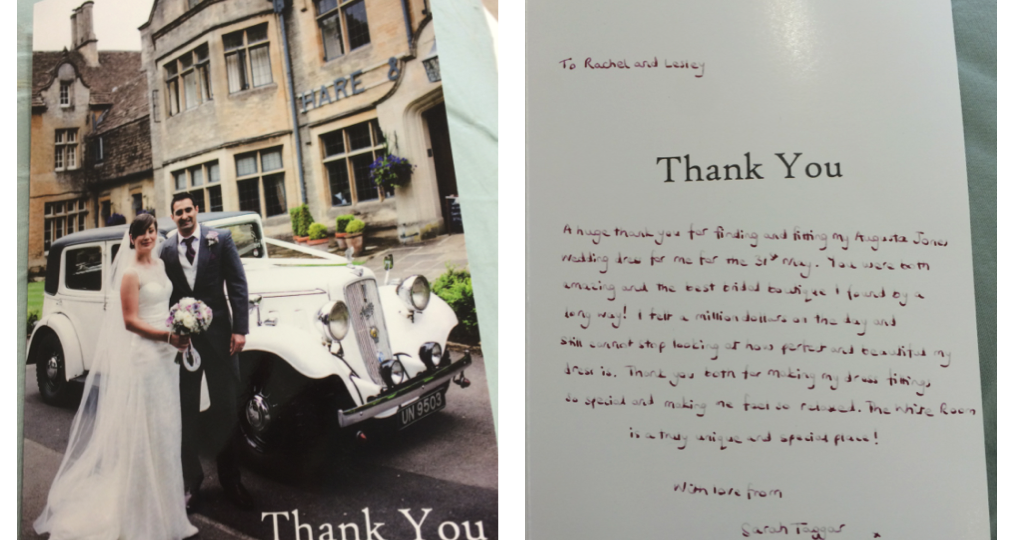 HARE &
UN 9503
Thank You
To Rachel and Lesley
Thank You
A huge thank you for finding and fitting my Augusta Jones
wedding dress for me for the 31st May. You were both
amazing and the best bridal boutique I found by a
long way! I felt a million dollars on the day and
still cannot stop looking at how perfect and beautiful my
dress is. Thank you both for making my dress fittings
so special and making me feel so relaxed. The White Room
is a truly unique and special place!
With love from
Sarah Taggar x